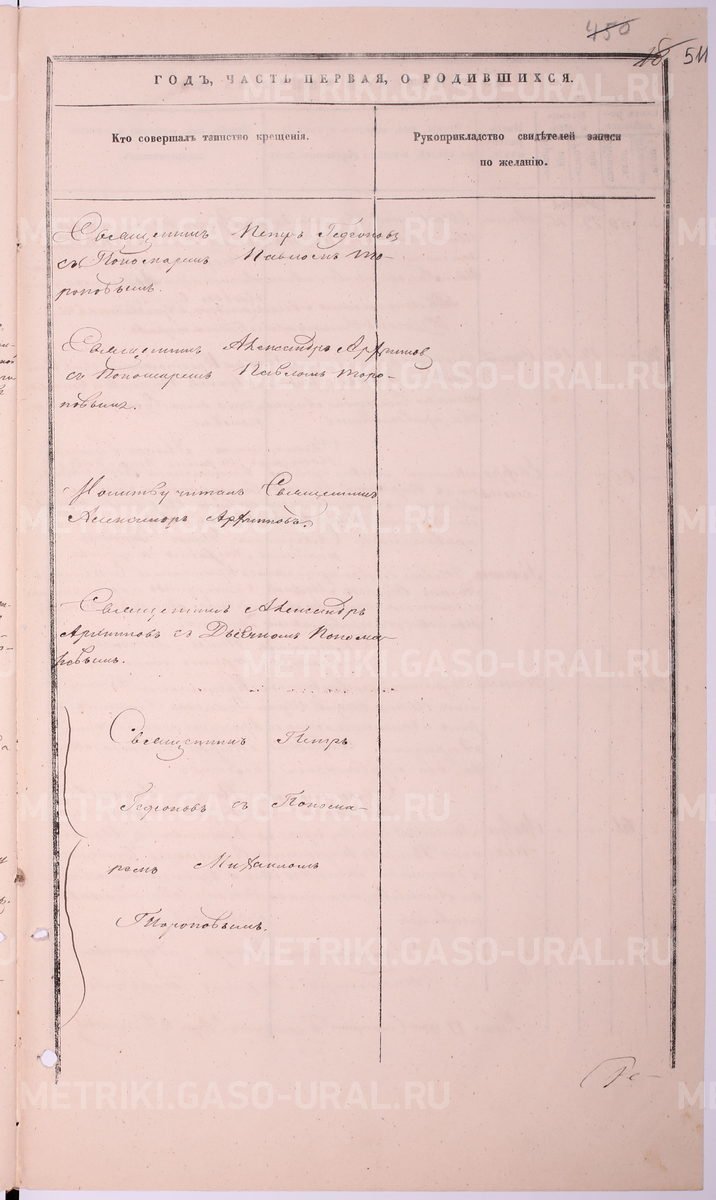 450
48 511
ГОДЪ, ЧАСТЬ ПЕРВАЯ, О РОДИВШИХСЯ.
Кто совершалъ таинство крещенія.
Рукоприкладство свидѣтелей записи
по желанію.
Священникъ Петръ Гедеоновъ
съ Пономаремъ Павломъ То-
роповымъ.
Священникъ Александръ Арфиповъ
съ Пономаремъ Павломъ Торо-
повымъ.
Молитву читалъ Священникъ
Александръ
Священникъ Александръ
съ Понома-
Священникъ Петръ
Гедеоновъ съ Понома-
ремъ Михаиломъ
Тороповымъ.
METRIKI.GASO-URAL.RU